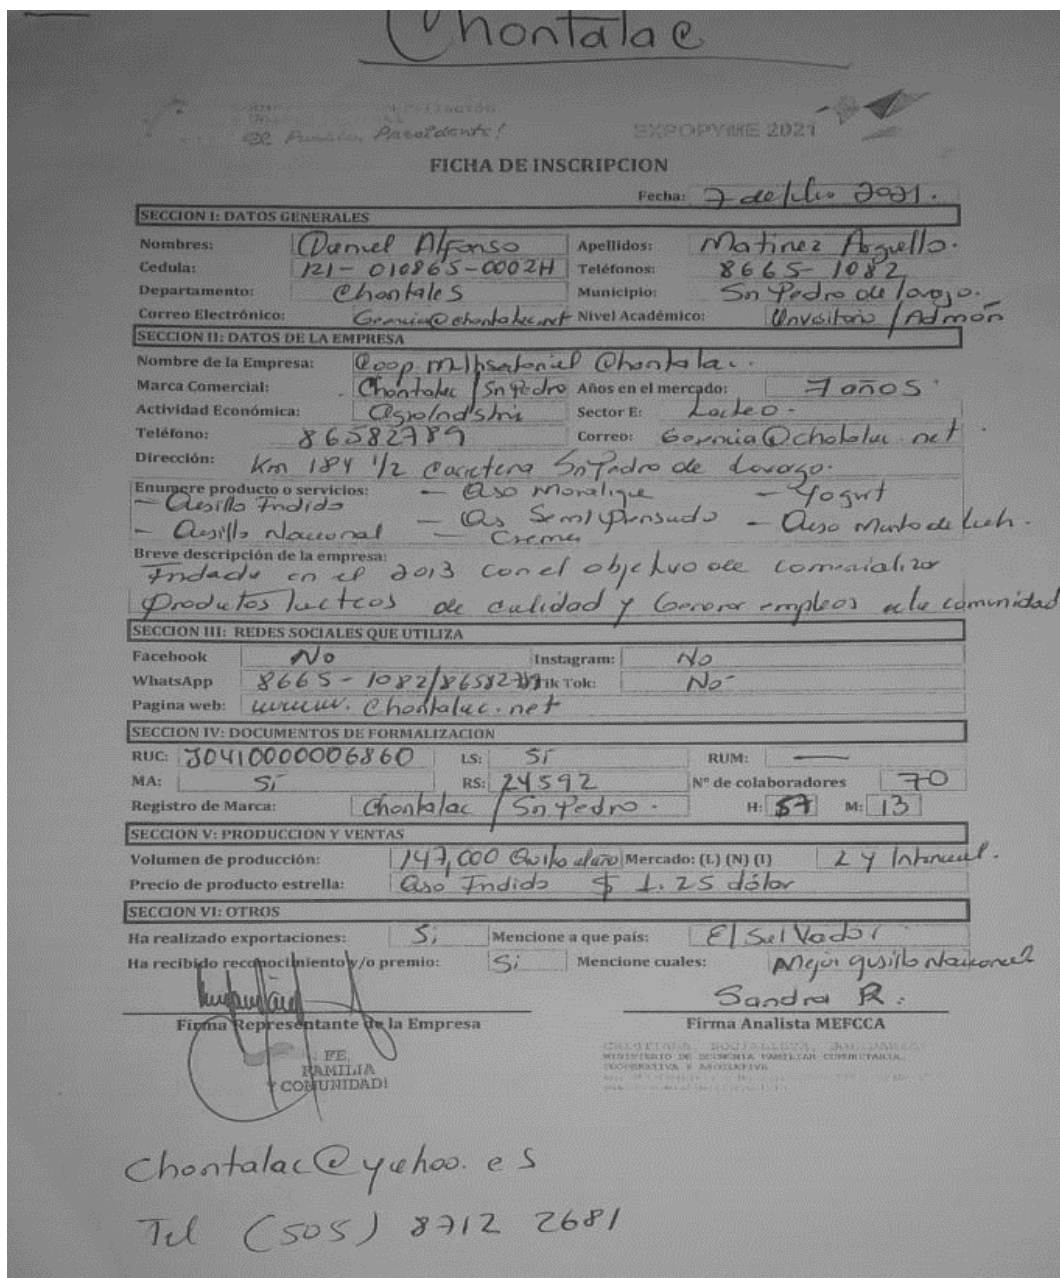 Chontalac
El Pueblo, Presidente!
EXPOPYME 2021
FICHA DE INSCRIPCION
Fecha: 7 de Julio 2021.
SECCION I: DATOS GENERALES
Nombres: Daniel Alfonso Apellidos: Matinez Arguello.
Cedula: 121-010865-0002H Teléfonos: 8665-1082
Departamento: Chontales Municipio: Sn Pedro de lovago.
Correo Electrónico: Nivel Académico: /Admón
SECCION II: DATOS DE LA EMPRESA
Nombre de la Empresa: Coop
Marca Comercial: Chontalac / Sn Pedro Años en el mercado: 7 años
Actividad Económica: Sector E: Lacteo.
Teléfono: 86582789 Correo:
Dirección: Km 184 1/2 Carretera Sn Pedro de Lovago.
Enumere producto o servicios: - Yogurt
-
- Nacional - Crema -
Breve descripción de la empresa:
en el 2013 con el objetivo de
Productos de calidad y empleos a la comunidad
SECCION III: REDES SOCIALES QUE UTILIZA
Facebook No Instagram: No
WhatsApp 8665-1082/ Tik Tok: No
Pagina web: www.Chontalac.net
SECCION IV: DOCUMENTOS DE FORMALIZACION
RUC: J0410000006860 LS: Si RUM: —
MA: Si RS: 24592 N° de colaboradores 70
Registro de Marca: Chontalac / Sn Pedro. H: 57 M: 13
SECCION V: PRODUCCION Y VENTAS
Volumen de producción: 147,000 Mercado: (L) (N) (I)
Precio de producto estrella: $ 1.25 dólar
SECCION VI: OTROS
Ha realizado exportaciones: Si Mencione a que país: El Salvador
Ha recibido reconocimiento y/o premio: Si Mencione cuales: Mejor Nacional
Sandra R.
Firma Representante de la Empresa Firma Analista MEFCCA
FE,
FAMILIA
Y COMUNIDAD!
MINISTERIO DE ECONOMIA FAMILIAR COMUNITARIA,
COOPERATIVA Y ASOCIATIVA
Chontalac@yahoo.es
Tel (505) 8712 2681